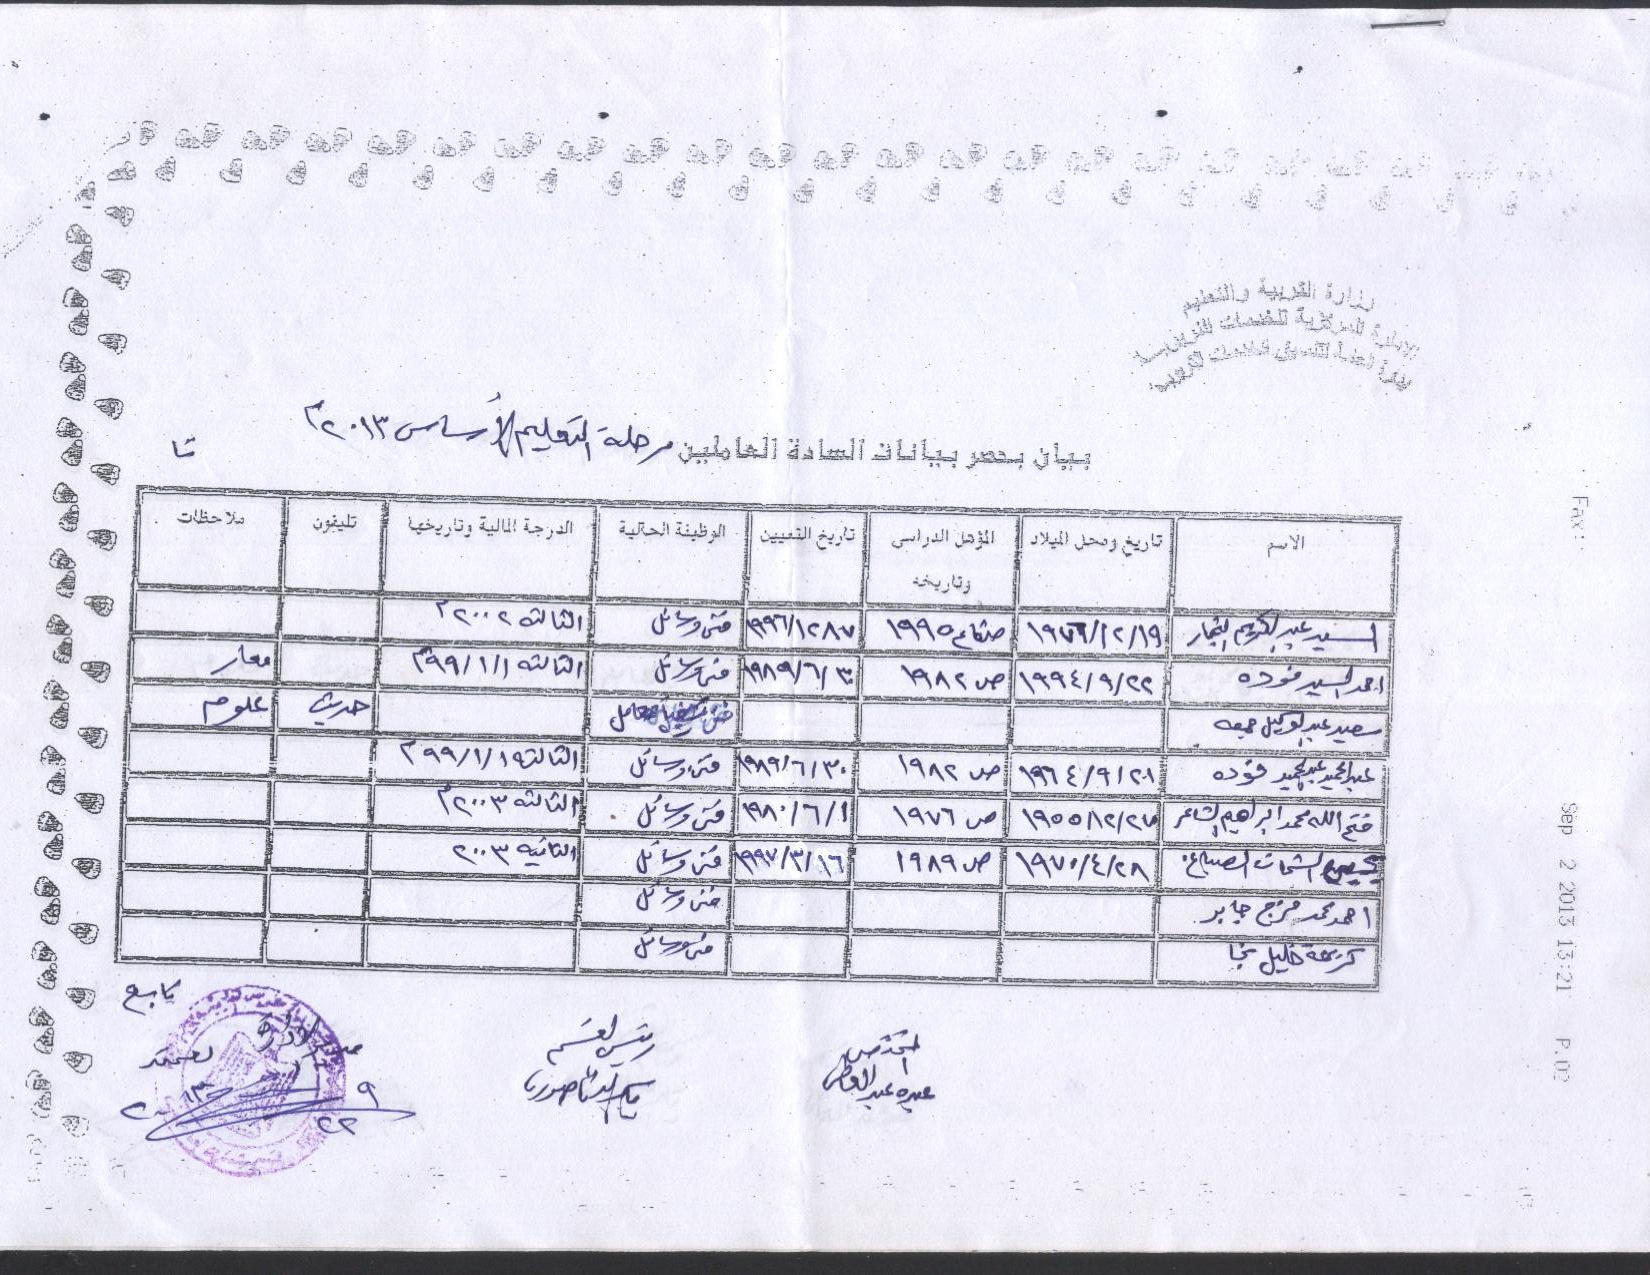 وزارة التربية والتعليم
الادارة المركزية للخدمات التربوية
بيان بحصر بيانات السادة العاملين مرحلة التعليم الأساسى ٢٠١٣م
الاسم تاريخ ومحل الميلاد المؤهل الدراسى وتاريخه تاريخ التعيين الوظيفة الحالية الدرجة المالية وتاريخها تليفون ملاحظات
السيد عبد الكريم النجار ١٩٧٦/١٢/١٩ صناع ١٩٩٥ فنى وسائل الثالثه ٢٠٠٢م
احمد السيد فوده ١٩٩٤/٩/٢٢ ص ١٩٨٢ ١٩٨٩/٦/٣٠ فنى وسائل الثالثه ٩٩/١/١م معار
سعيد عبد الوكيل جمعه فنى معامل حديث علوم
عبد الحميد عبد الحميد فوده ١٩٦٤/٩/٢٠١ ص ١٩٨٢ ١٩٨٩/٦/٣٠ فنى وسائل الثالثه ٩٩/١/١م
فتح الله محمد ابراهيم الشاعر ١٩٥٥/١٢/٢٧ ص ١٩٧٦ ١٩٨٠/٦/١ فنى وسائل الثالثه ٢٠٠٣م
الشحات الصباغ ١٩٧٠/٤/٢٨ ص ١٩٨٩ ١٩٩٧/٣/١٦ فنى وسائل الثانيه ٢٠٠٣م
احمد محمد فرج جابر فنى وسائل
كريمة خليل نجا فنى وسائل
يتابع
رئيس القسم
مدير الادارة
يعتمد
Fax:
Sep 2 2013 13:21 P.02